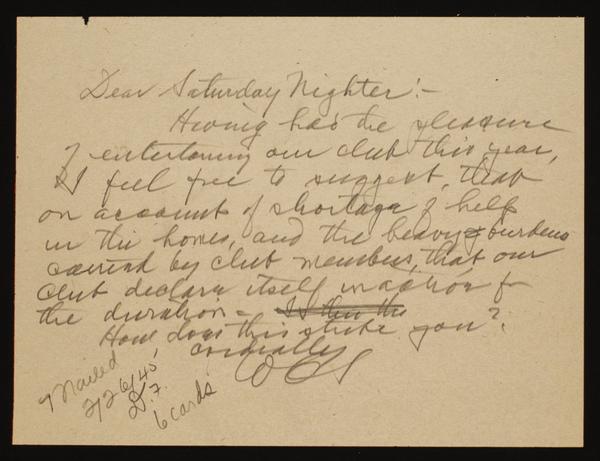 Dear Saturday Nighter:-
Having had the pleasure
of entertaining our club this year,
I feel free to suggest, that
on account of shortage of help
in the homes, and the heavy burdens
carried by club members, that our
club declare itself inactive for
the duration-
How does this strike you?
Cordially
Mailed
2/26/45
D.7.
6 cards